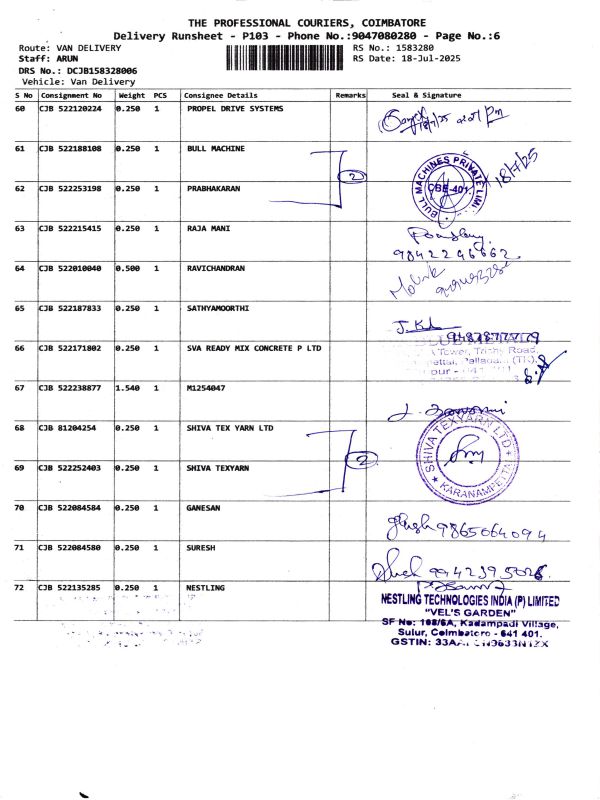 THE PROFESSIONAL COURIERS, COIMBATORE
Delivery Runsheet - P103 - Phone No.:9047080280 - Page No.:6
Route: VAN DELIVERY
RS No.: 1583280
Staff: ARUN
RS Date: 18-Jul-2025
DRS No.: DCJB158328006
Vehicle: Van Delivery
S No Consignment No Weight PCS Consignee Details Remarks Seal & Signature
60 CJB 522120224 0.250 1 PROPEL DRIVE SYSTEMS
61 CJB 522188108 0.250 1 BULL MACHINE
2
BULL MACHINES PRIVATE LIMI
CBE-401
18/7/25
62 CJB 522253198 0.250 1 PRABHAKARAN
63 CJB 522215415 0.250 1 RAJA MANI
9842246662
64 CJB 522010040 0.500 1 RAVICHANDRAN
65 CJB 522187833 0.250 1 SATHYAMOORTHI
66 CJB 522171802 0.250 1 SVA READY MIX CONCRETE P LTD
Tower, Trichy Road,
67 CJB 522238877 1.540 1 M1254047
68 CJB 81204254 0.250 1 SHIVA TEX YARN LTD
2
SHIVA TEXYARN LTD
KARANAMPETTAI
69 CJB 522252403 0.250 1 SHIVA TEXYARN
70 CJB 522084584 0.250 1 GANESAN
9865064094
71 CJB 522084580 0.250 1 SURESH
72 CJB 522135285 0.250 1 NESTLING
NESTLING TECHNOLOGIES INDIA (P) LIMITED
"VEL'S GARDEN"
SF No: 108/6A, Kadampadi Village,
Sulur, Coimbatore - 641 401.
GSTIN: